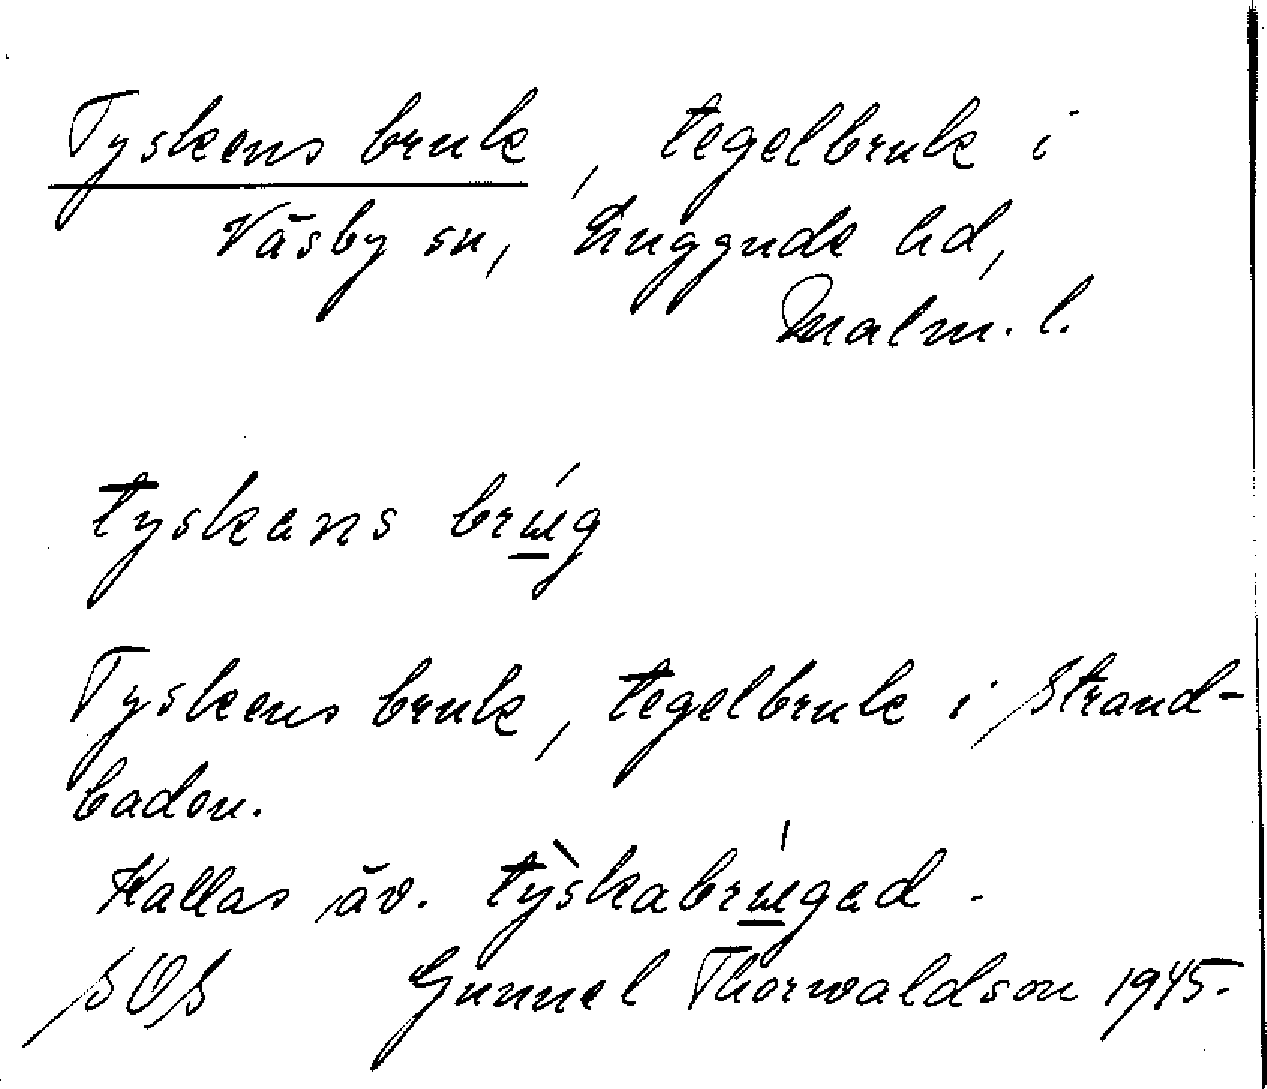 Tyskens bruk, tegelbruk i
Väsby sn, Luggude hd,
Malm. l.
tyskans brúg
Tyskens bruk, tegelbruk i Strand-
baden.
Kallas äv. tỳskabrúgad.
SOS Gunnel Thorwaldson 1945.